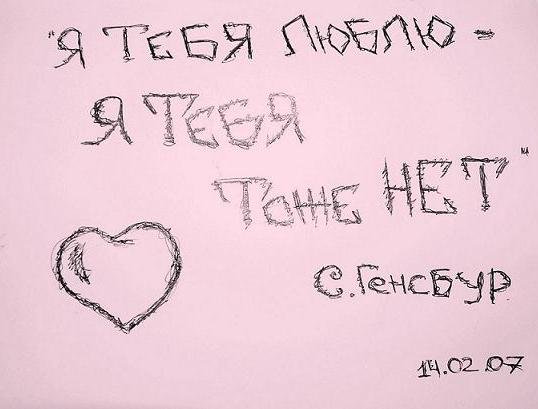 "Я ТЕБЯ ЛЮБЛЮ -
Я ТЕБЯ
ТОЖЕ НЕТ"
С. Генсбур
14.02.07